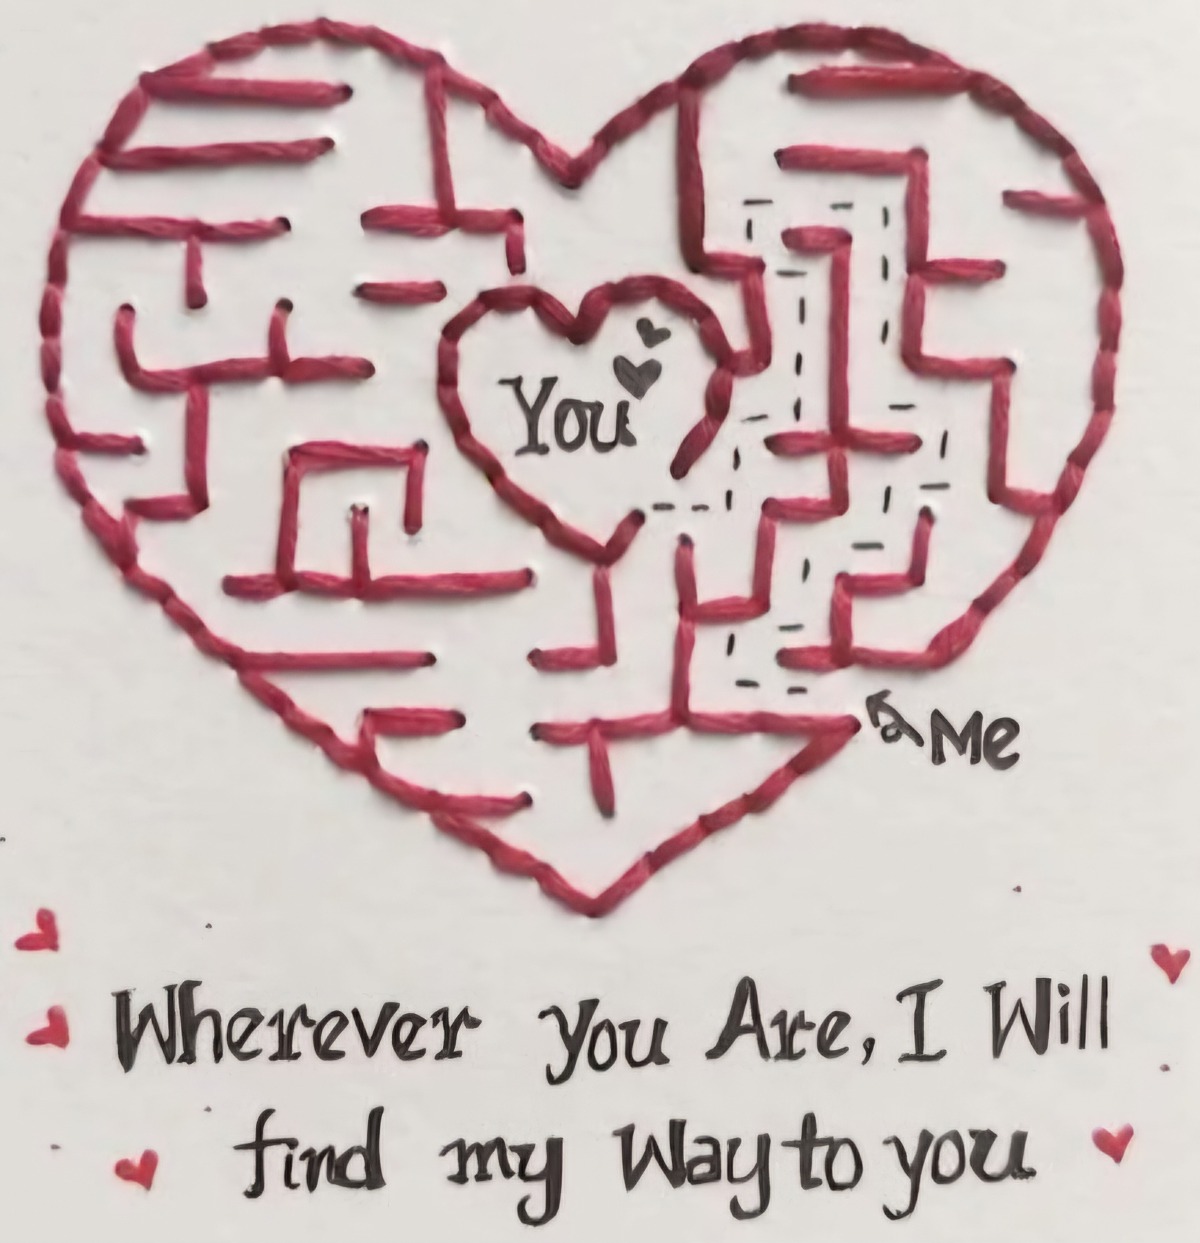 You
Me
Wherever you Are, I Will
find my Way to you